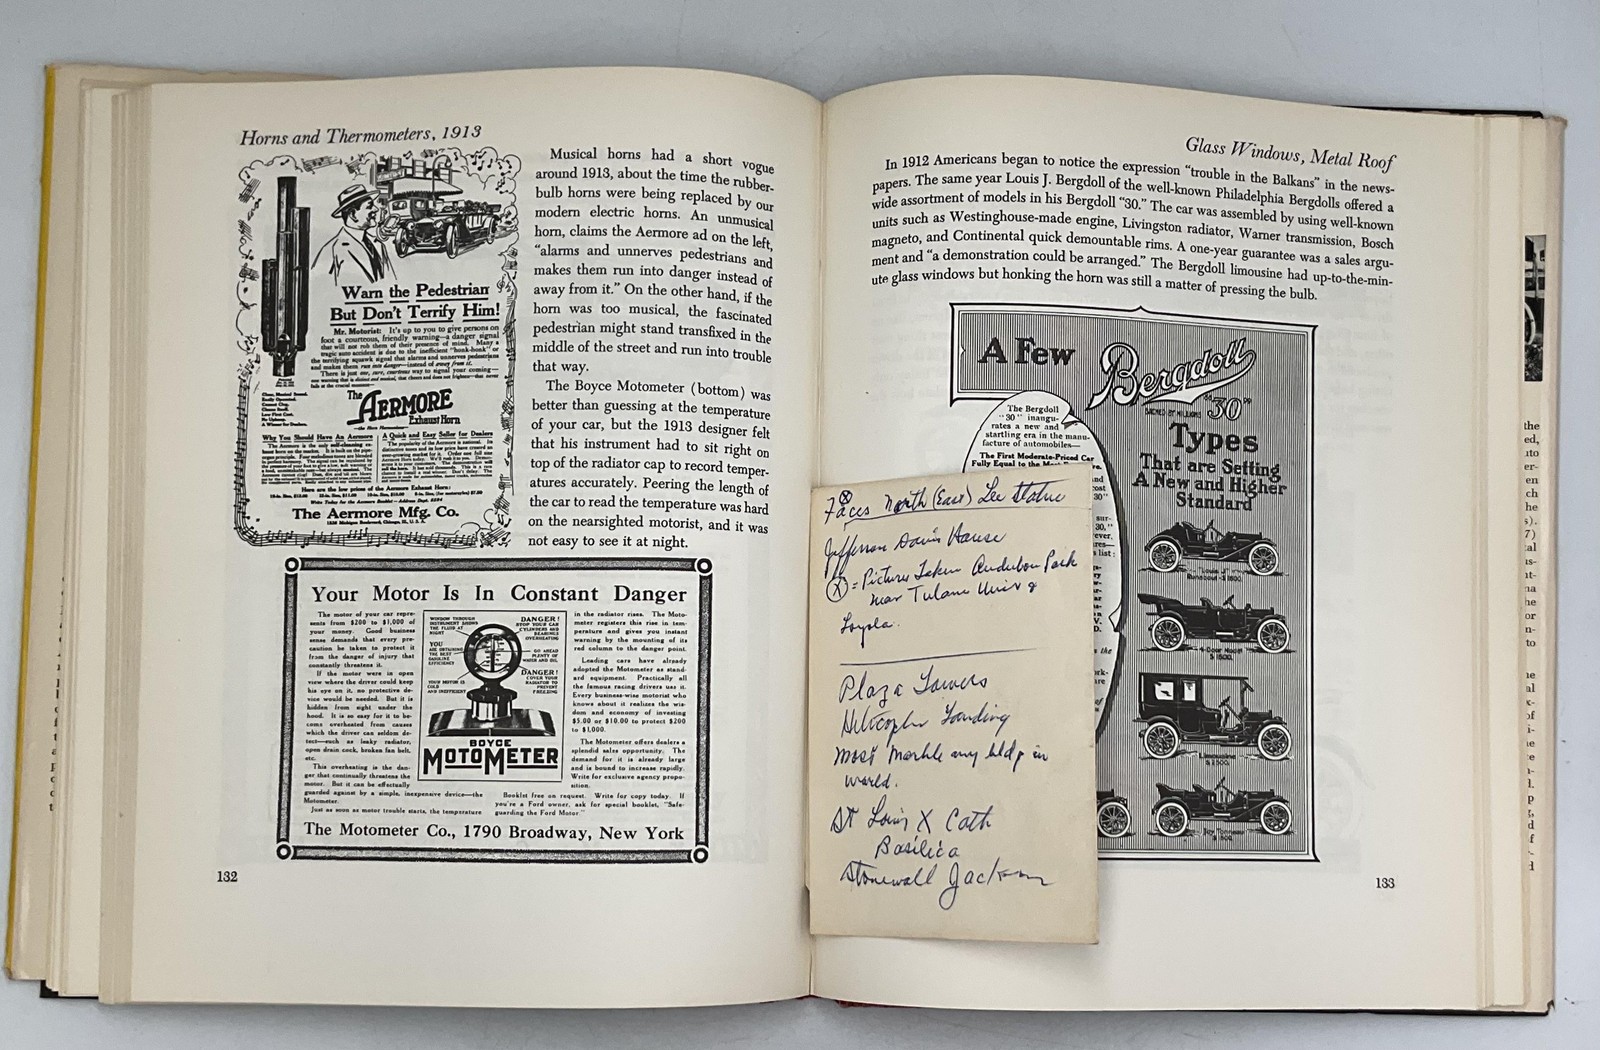 Horns and Thermometers, 1913
Warn the Pedestrian
But Don't Terrify Him!
Mr. Motorist: It's up to you to give persons on
foot a courteous, friendly warning—a danger signal
that will not rob them of their presence of mind. Many a
tragic auto accident is due to the inefficient "honk-honk" or
the terrifying squawk signal that alarms and unnerves pedestrians
and makes them run into danger—instead of away from it.
There is just one, sure, courteous way to signal your coming—
The
AERMORE
Exhaust Horn
Why You Should Have An Aermore
A Quick and Easy Seller for Dealers
Here are the low prices of the Aermore Exhaust Horn:
The Aermore Mfg. Co.
Musical horns had a short vogue
around 1913, about the time the rubber-
bulb horns were being replaced by our
modern electric horns. An unmusical
horn, claims the Aermore ad on the left,
"alarms and unnerves pedestrians and
makes them run into danger instead of
away from it." On the other hand, if the
horn was too musical, the fascinated
pedestrian might stand transfixed in the
middle of the street and run into trouble
that way.
The Boyce Motometer (bottom) was
better than guessing at the temperature
of your car, but the 1913 designer felt
that his instrument had to sit right on
top of the radiator cap to record temper-
atures accurately. Peering the length of
the car to read the temperature was hard
on the nearsighted motorist, and it was
not easy to see it at night.
Your Motor Is In Constant Danger
The motor of your car repre-
sents from $200 to $1,000 of
your money. Good business
sense demands that every pre-
caution be taken to protect it
from the danger of injury that
constantly threatens it.
If the motor were in open
view where the driver could keep
his eye on it, no protective de-
vice would be needed. But it is
hidden from sight under the
hood. It is so easy for it to be-
come overheated from causes
which the driver can seldom de-
tect—such as leaky radiator,
open drain cock, broken fan belt,
etc.
This overheating is the dan-
ger that continually threatens the
motor. But it can be effectually
guarded against by a simple, inexpensive device—the
Motometer.
Just as soon as motor trouble starts, the temperature
WINDOW THROUGH
INSTRUMENT SHOWS
THE FLUID AT
NIGHT
YOU
ARE OBTAINING
THE BEST
GASOLINE
EFFICIENCY
YOUR MOTOR IS
COLD
AND INEFFICIENT
DANGER!
STOP YOUR CAR
CYLINDERS AND
BEARINGS
OVERHEATING
GO AHEAD
PLENTY OF
WATER AND OIL
DANGER!
COVER YOUR
RADIATOR TO
PREVENT
FREEZING
BOYCE
MOTOMETER
in the radiator rises. The Moto-
meter registers this rise in tem-
perature and gives you instant
warning by the mounting of its
red column to the danger point.
Leading cars have already
adopted the Motometer as stand-
ard equipment. Practically all
the famous racing drivers use it.
Every business-wise motorist who
knows about it realizes the wis-
dom and economy of investing
$5.00 or $10.00 to protect $200
to $1,000.
The Motometer offers dealers a
splendid sales opportunity. The
demand for it is already large
and is bound to increase rapidly.
Write for exclusive agency propo-
sition.
Booklet free on request. Write for copy today. If
you're a Ford owner, ask for special booklet, "Safe-
guarding the Ford Motor."
The Motometer Co., 1790 Broadway, New York
132
Glass Windows, Metal Roof
In 1912 Americans began to notice the expression "trouble in the Balkans" in the news-
papers. The same year Louis J. Bergdoll of the well-known Philadelphia Bergdolls offered a
wide assortment of models in his Bergdoll "30." The car was assembled by using well-known
units such as Westinghouse-made engine, Livingston radiator, Warner transmission, Bosch
magneto, and Continental quick demountable rims. A one-year guarantee was a sales argu-
ment and "a demonstration could be arranged." The Bergdoll limousine had up-to-the-min-
ute glass windows but honking the horn was still a matter of pressing the bulb.
A Few
Bergdoll
"30"
Types
That are Setting
A New and Higher
Standard
The Bergdoll
"30" inaugu-
rates a new and
startling era in the manu-
facture of automobiles—
The First Moderate-Priced Car
Fully Equal to the
"Louis J"
Runabout - $1500.
4-Door Model
$1600.
Limousine
$2500.
Faces North (East) Lee Statue
Jefferson Davis House
(X) = Pictures Taken Audubon Park
near Tulane Univ &
Loyola.
Plaza Towers
Helicopter Landing
Most Marble any bldg in
world.
St Louis X Cath
Basilica
Stonewall Jackson
133